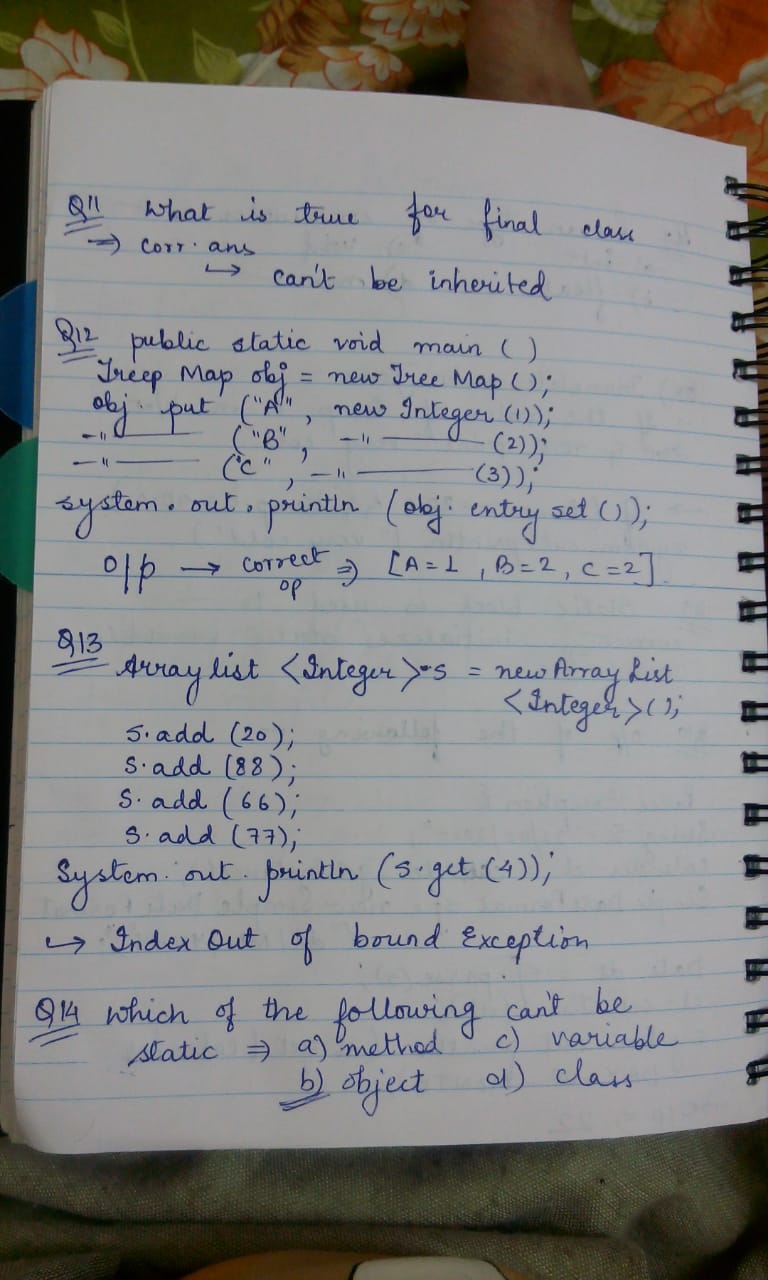 Q11 What is true for final class
⇒ corr. ans
↳ can't be inherited
Q12 public static void main ( )
Treep Map obj = new Tree Map ( );
obj put ("A", new Integer (1));
-"- ("B", -"- (2));
-"- ("C", -"- (3));
System. out. println (obj. entry set ( ));
o/p → correct op ⇒ [A=1, B=2, C=2]
Q13
Array list <Integer> s = new Array List
<Integer>( );
S.add (20);
S.add (88);
S.add (66);
S.add (77);
System. out. println (s.get (4));
↳ Index Out of bound Exception
Q14 which of the following can't be
static ⇒ a) method c) variable
b) object d) class